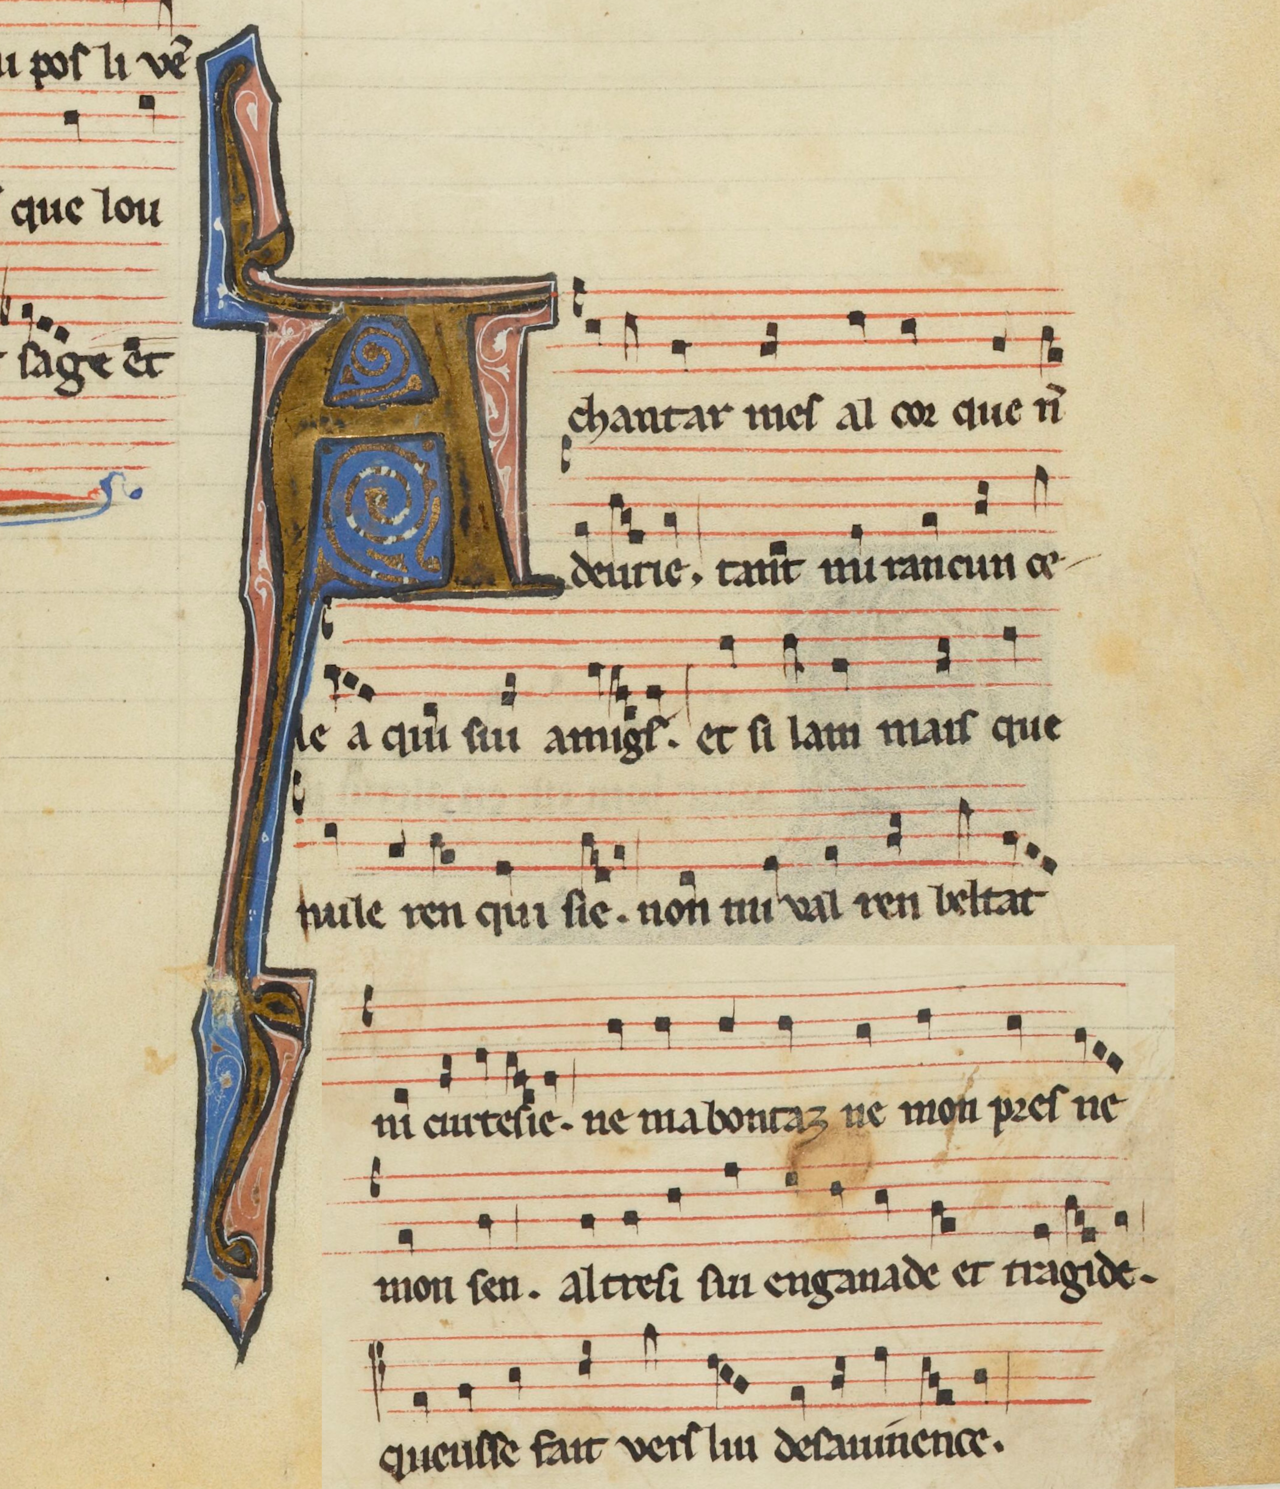 u pos li vē
que lou
sage et
A chantar mes al cor que n̄
deurie. tant mi rancun ce
le a qui sui amigs. et si lam mais que
nule ren qui sie. non mi val ren beltat
ni curtesie. ne ma bontaz ne mon pres ne
mon sen. altresi sui enganade et tragide.
queusse fait vers lui desauinence.